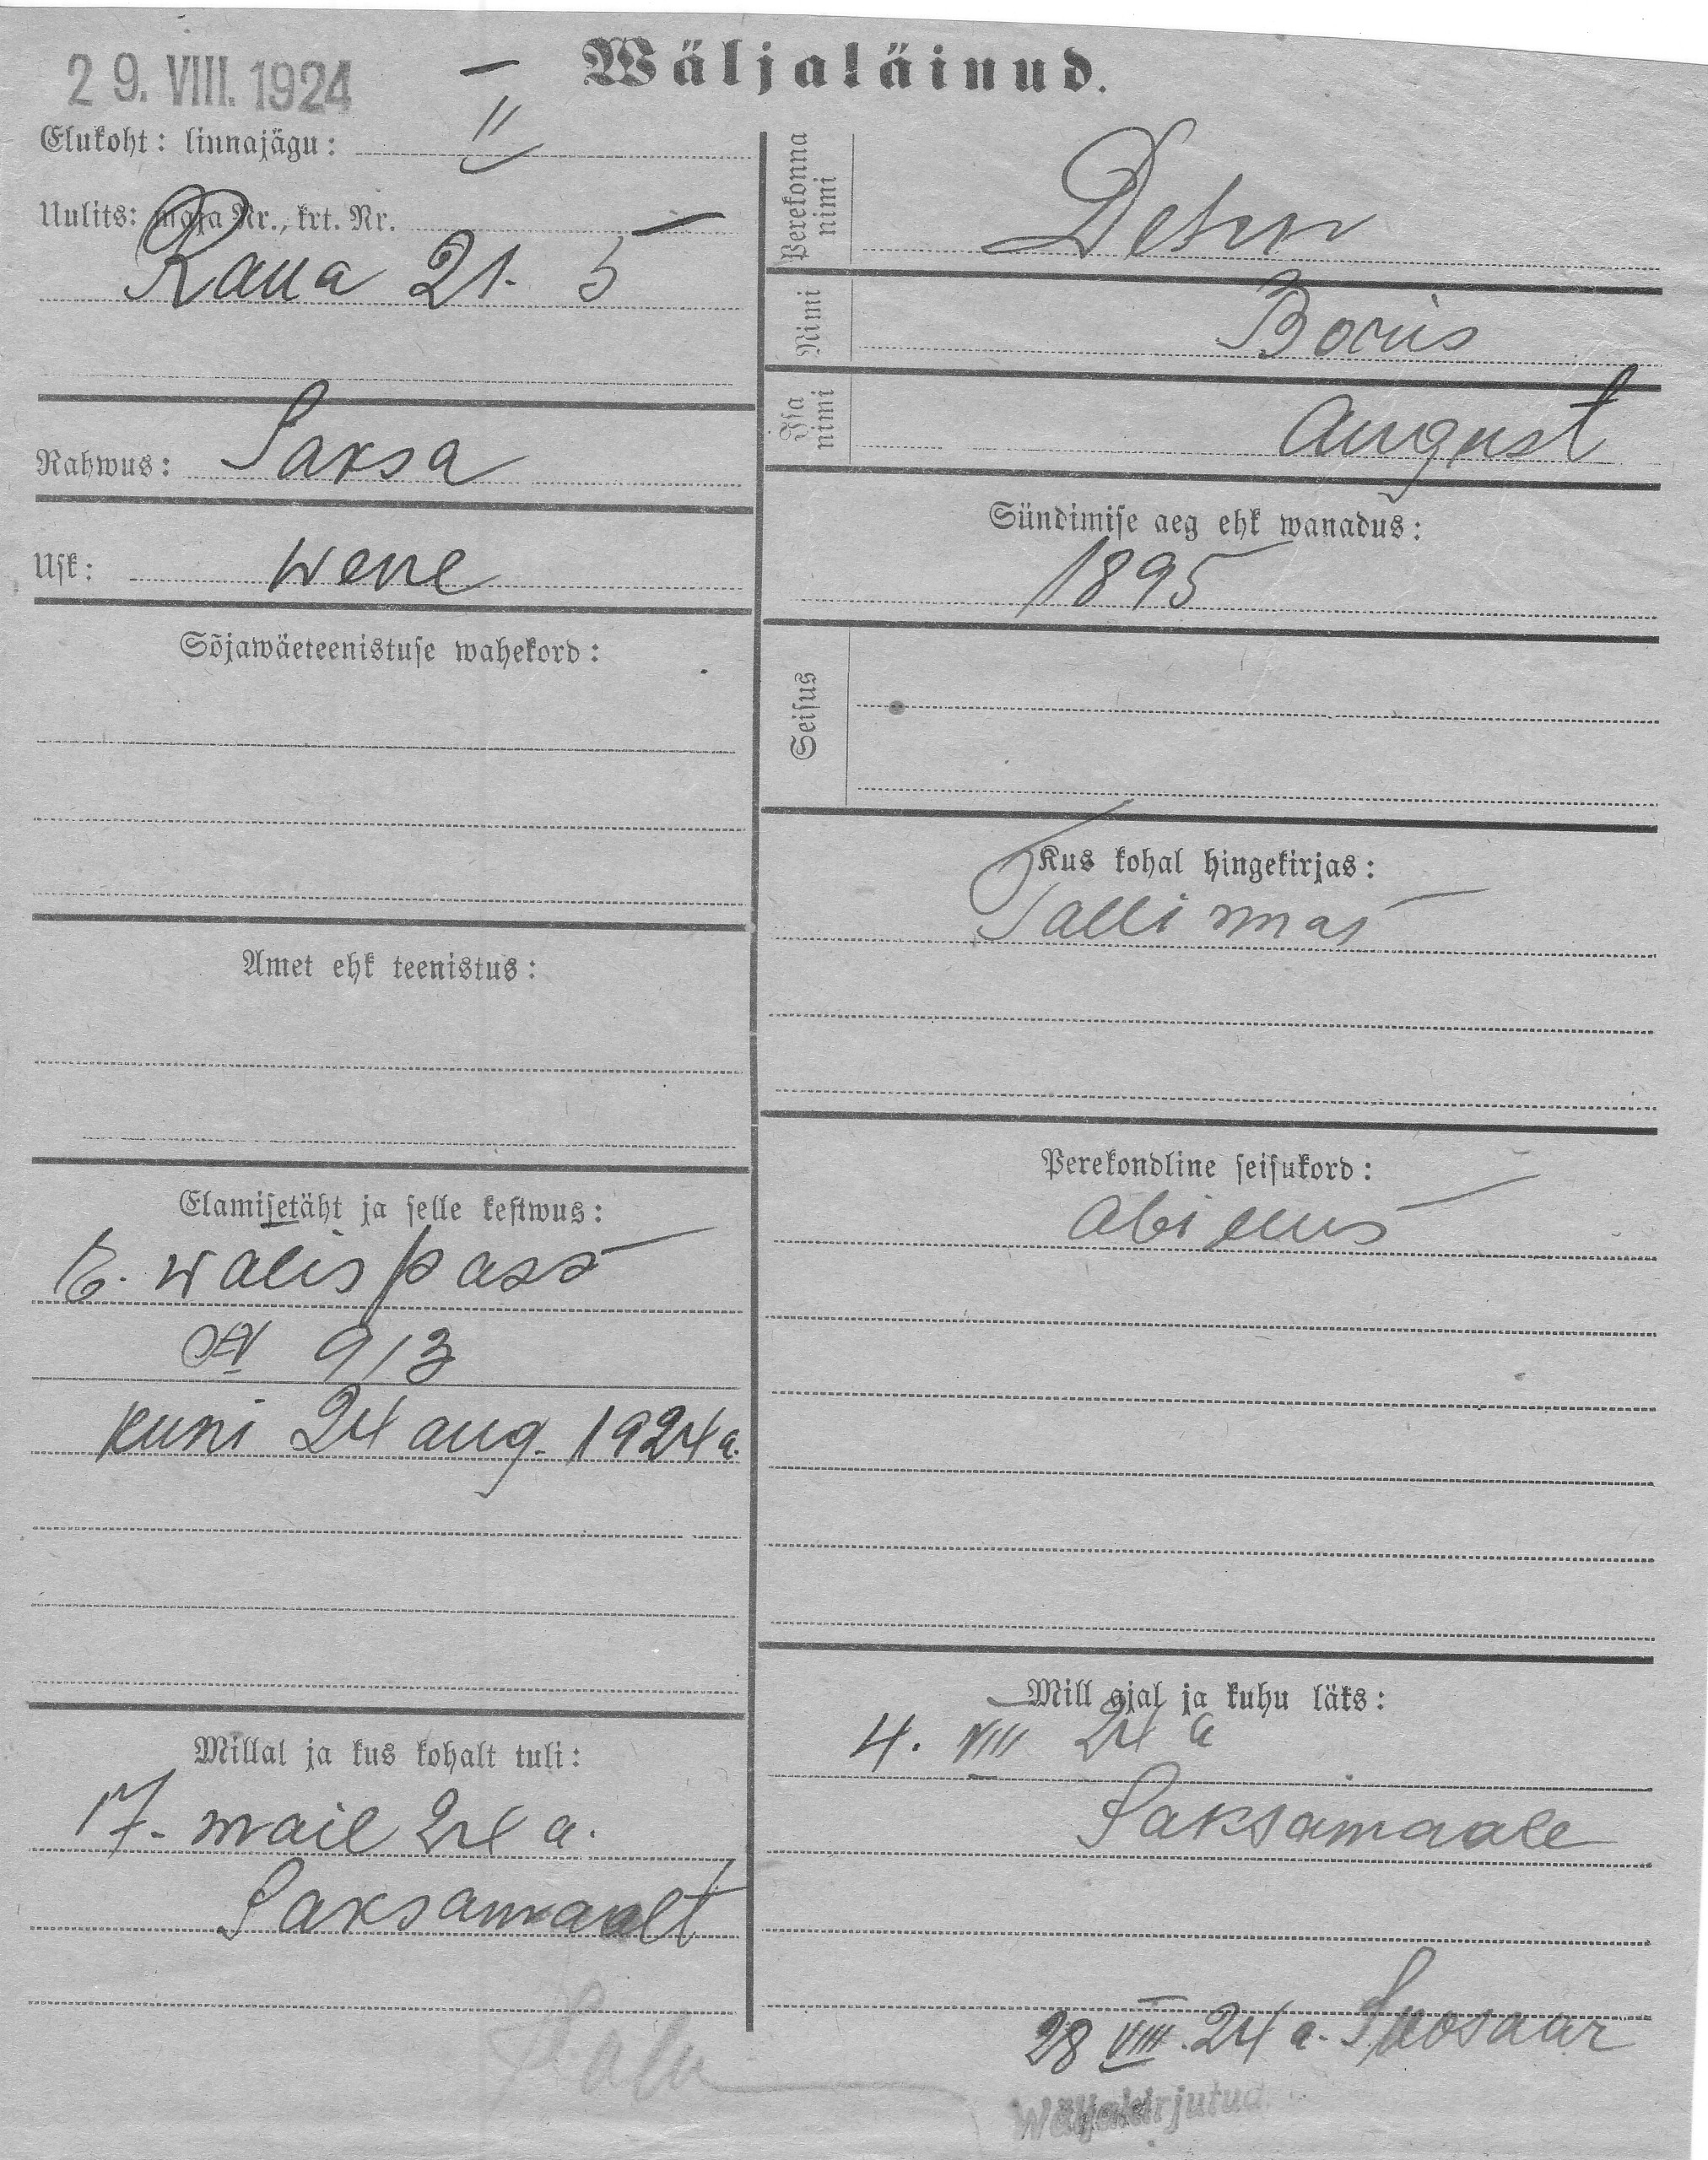 29. VIII. 1924
Wäljaläinud.
Elukoht: linnajägu: II
Uulits: maja Nr., krt. Nr.
Raua 21-5
Rahwus: Saksa
Usk: wene
Sõjawäeteenistuse wahekord:
Amet ehk teenistus:
Elamisetäht ja selle kestwus:
E. walispass
№ 913
kuni 24 aug. 1924 a.
Millal ja kus kohalt tuli:
17. mail 24 a.
Saksamaalt
Perekonna nimi Dehn
Nimi Boris
Isa nimi August
Sündimise aeg ehk wanadus:
1895
Seisus
Kus kohal hingekirjas:
Tallinnas
Perekondline seisukord:
abielus
Mill ajal ja kuhu läks:
4. VIII 24 a
Saksamaale
28 VIII. 24 a.
Wäljakirjutud.